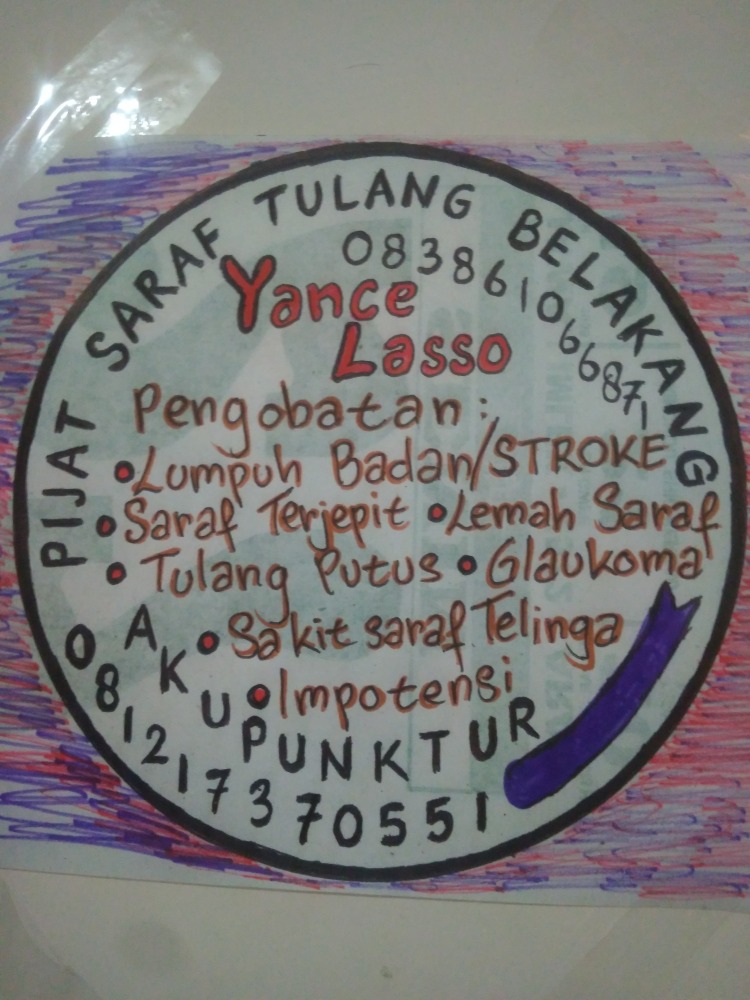 PIJAT SARAF TULANG BELAKANG
083861066871
Yance
Lasso
Pengobatan:
•Lumpuh Badan/STROKE
•Saraf Terjepit •Lemah Saraf
•Tulang Putus •Glaukoma
•Sakit saraf Telinga
•Impotensi
AKUPUNKTUR
081217370551